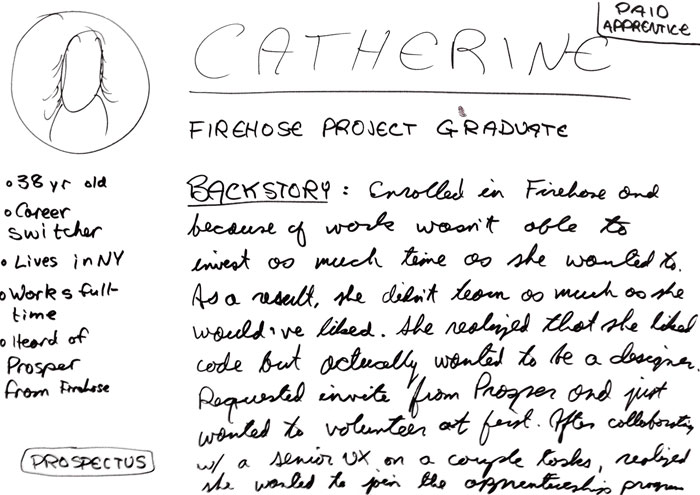 PAID
APPRENTICE
CATHERINE
FIREHOSE PROJECT GRADUATE
• 38 yr old
• Career
switcher
• Lives in NY
• Works full-
time
• Heard of
Prosper
from Firehose
PROSPECTUS
BACKSTORY: Enrolled in Firehose and
because of work wasn't able to
invest as much time as she wanted to.
As a result, she didn't learn as much as she
would've liked. She realized that she liked
code but actually wanted to be a designer.
Requested invite from Prosper and just
wanted to volunteer at first. After collaborating
w/ a senior UX on a couple tasks, realized
she wanted to join the apprenticeship program